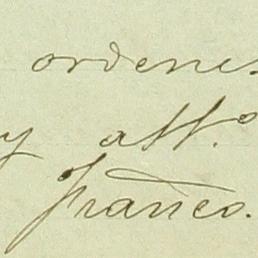 ordenes
y att.º
franco.